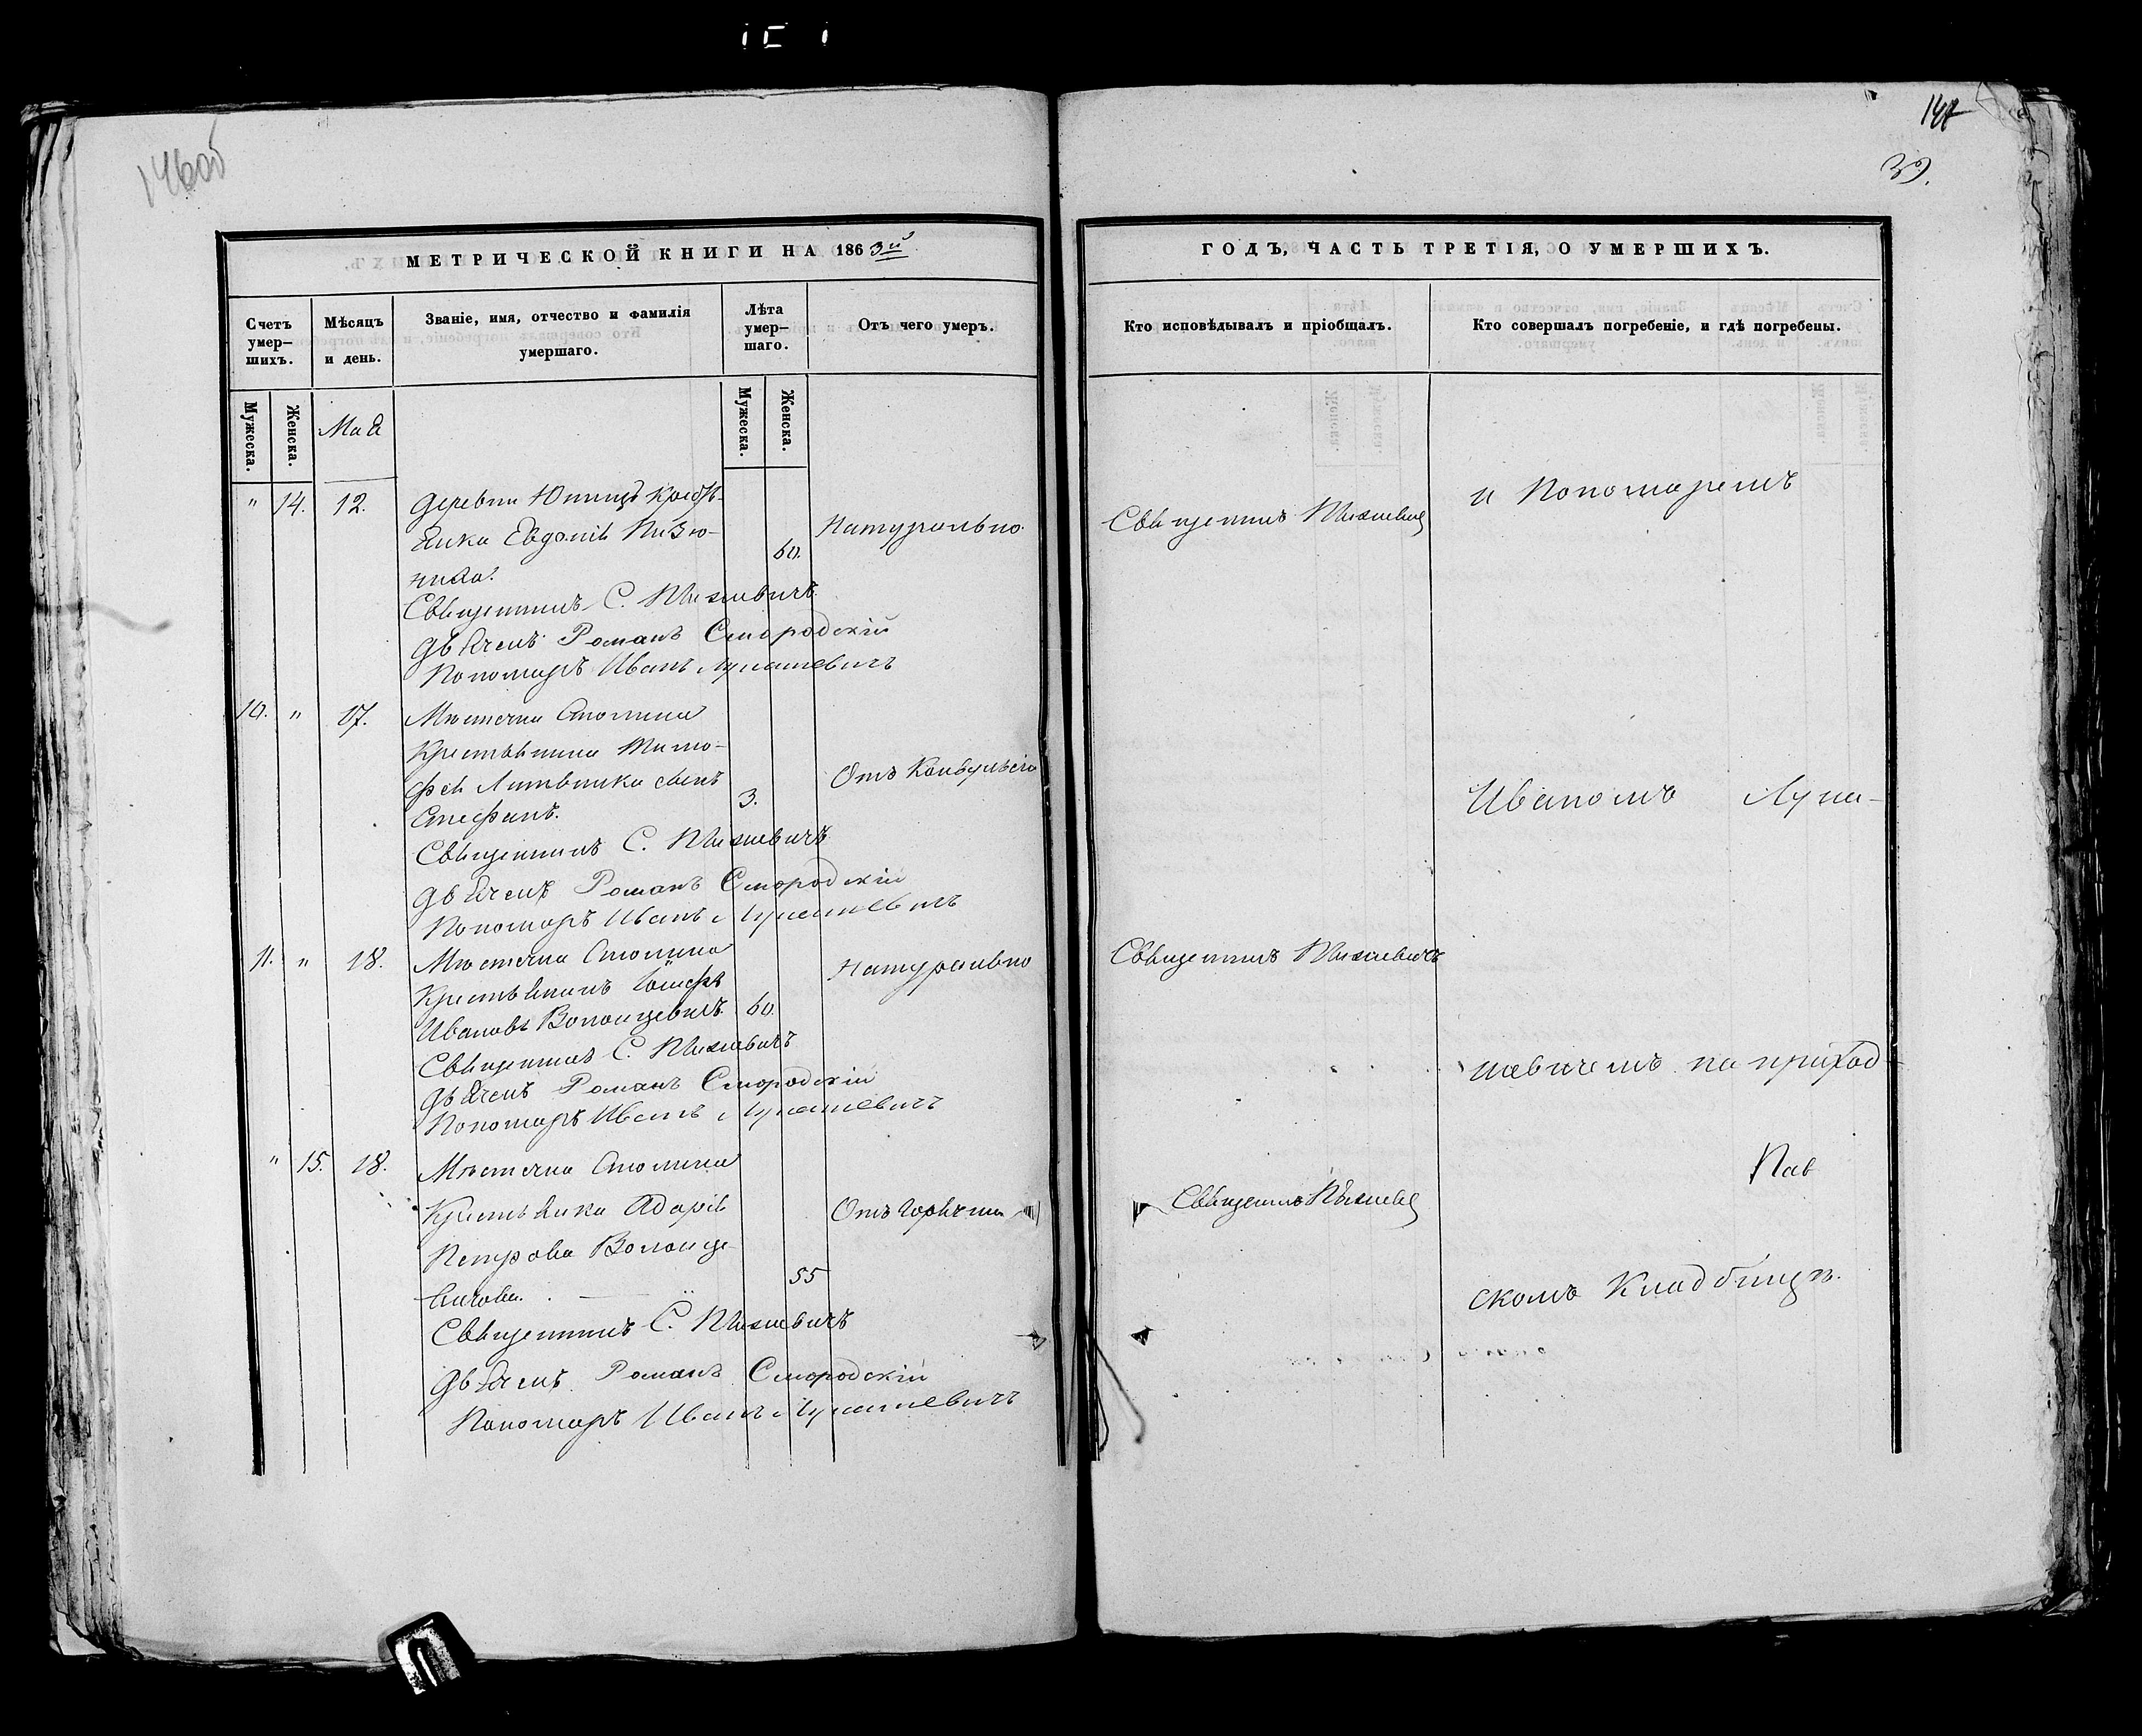 146об
147
39.
МЕТРИЧЕСКОЙ КНИГИ НА 1863й
Счетъ умер-шихъ.
Мѣсяцъ и день.
Званіе, имя, отчество и фамилія умершаго.
Лѣта умер-шаго.
Отъ чего умеръ.
Мужеска.
Женска.
Мая
Мужеска.
Женска.
" 14. 12. Деревни
янка Евдокія
60. Натурально.
Священникъ С. Михневичъ
Дьячекъ Романъ Смородскій
Пономарь Иванъ Лукашевичъ
10. " 17. Мѣстечка Столина
Крестьянина Тимо-
фея Литвинка сынъ
Стефанъ. 3. Отъ Конвульсіи
Священникъ С. Михневичъ
Дьячекъ Романъ Смородскій
Пономарь Иванъ Лукашевичъ
11. " 18. Мѣстечка Столина Натурально
Крестьянинъ Іосифъ
Ивановъ Вологцевичъ. 60.
Священникъ С. Михневичъ
Дьячекъ Романъ Смородскій
Пономарь Иванъ Лукашевичъ
" 15. 18. Мѣстечка Столина
Крестьянка Адарія Отъ Горячки
Петрова
вичова. 55
Священникъ С. Михневичъ
Дьячекъ Романъ Смородскій
Пономарь Иванъ Лукашевичъ
ГОДЪ, ЧАСТЬ ТРЕТІЯ, О УМЕРШИХЪ.
Кто исповѣдывалъ и пріобщалъ.
Кто совершалъ погребеніе, и гдѣ погребены.
Священникъ Михневичъ
и Пономаремъ
Иваномъ Лука-
Священникъ Михневичъ
шевичемъ на приход-
Священникъ Михневичъ
скомъ Кладбищѣ.